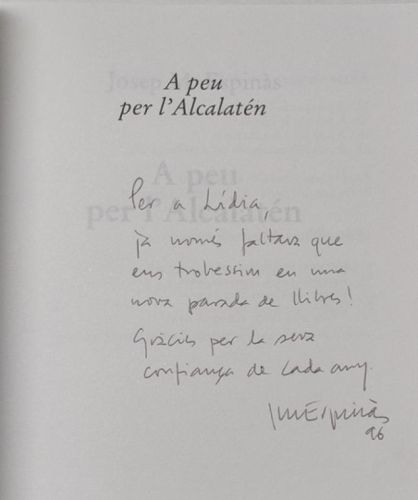 Josep M. Espinàs
A peu
per l'Alcalatén
A peu
per l'Alcalatén
Per a Lídia,
ja només faltava que
ens trobéssim en una
nova parada de llibres!
Gràcies per la seva
confiança de cada any.
JMEspinàs
96